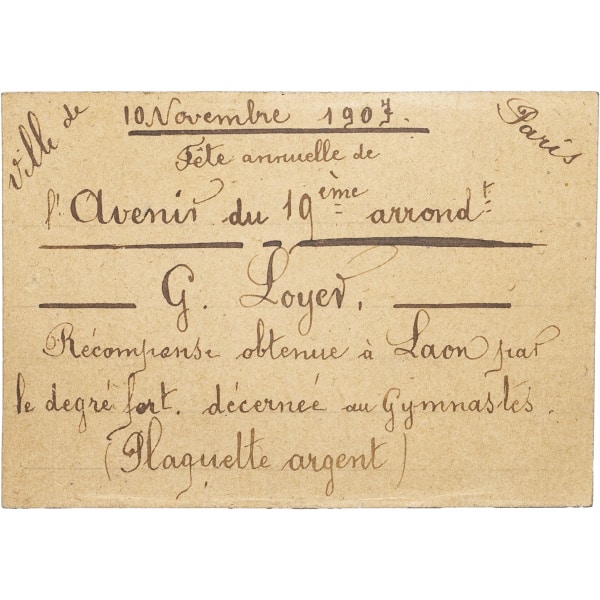 Ville de
10 Novembre 1907.
Paris
Fête annuelle de
l'Avenir du 19ème arrondt
G. Loyer,
Récompense obtenue à Laon par
le degré fort. décerneé au Gymnastes.
(Plaquette argent)